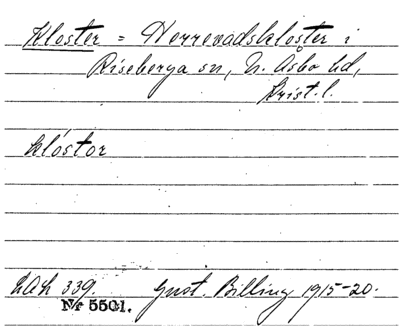 Kloster = Herrevadskloster i
Riseberga sn, N. Åsbo hd,
Krist. l.
klóstor
LAL 339. Gust. Billing 1915-20.
Nr 5501.